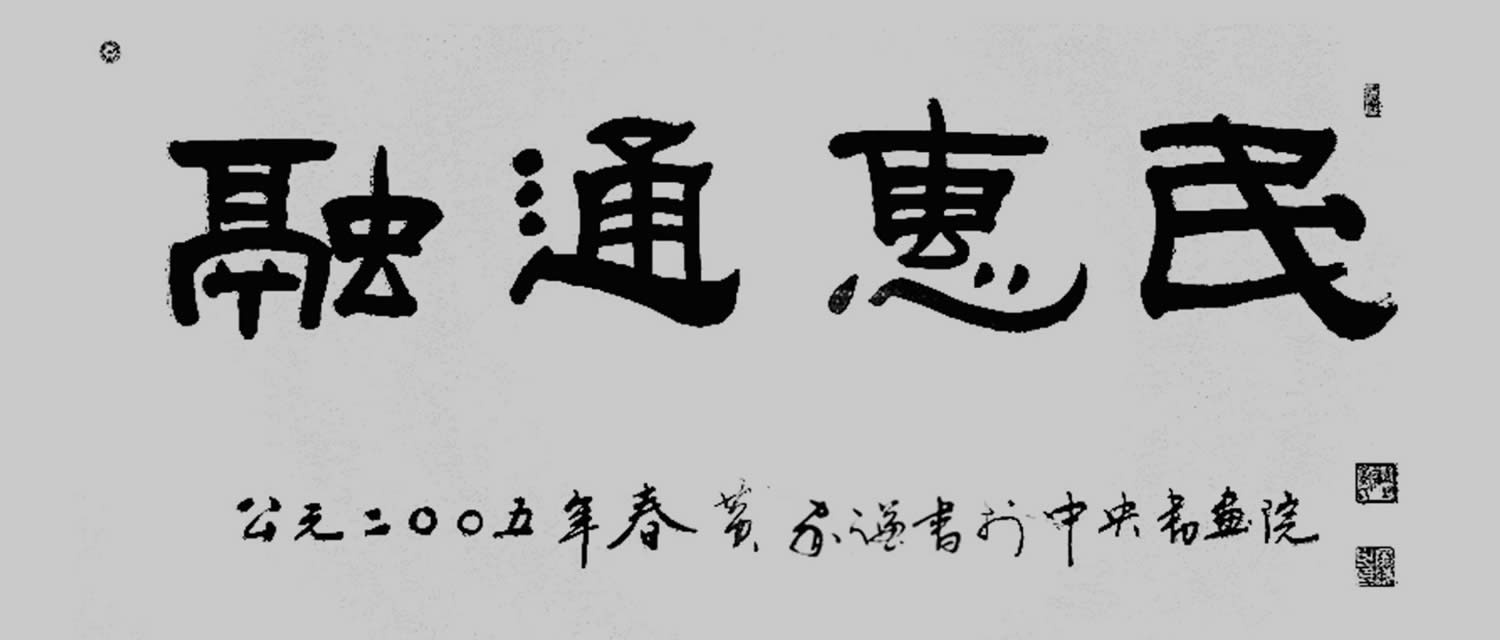 融通惠民
公元二〇〇五年春黄家谧書於中央书画院